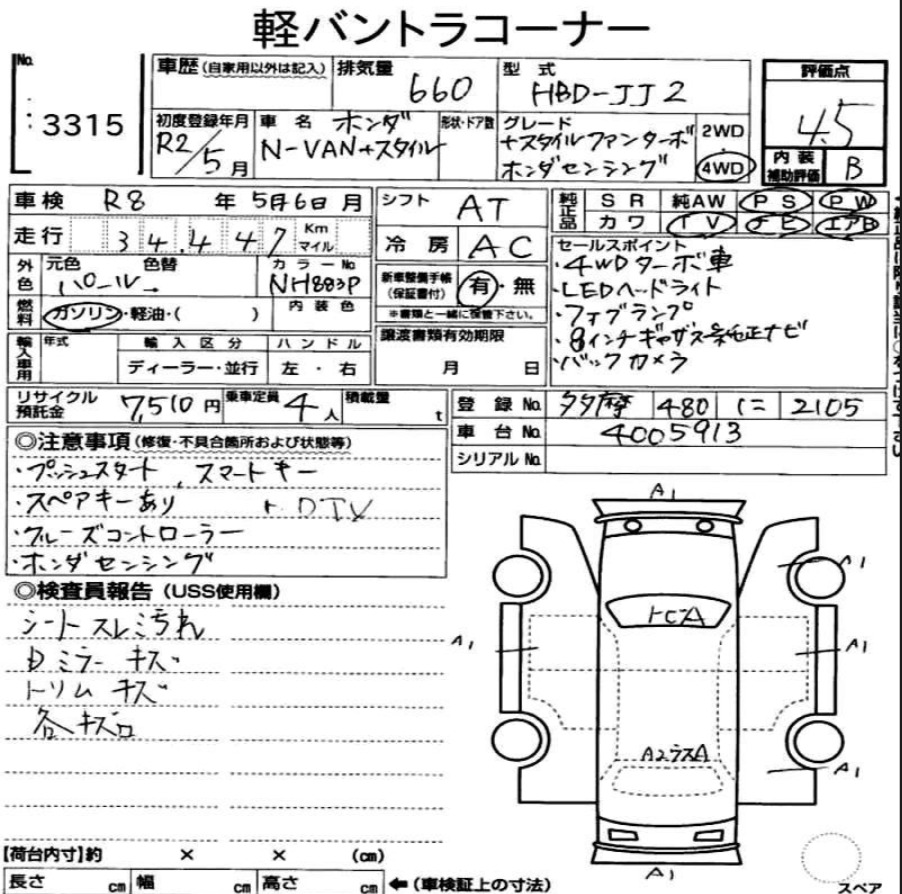 軽バントラコーナー
No. 3315
車歴 (自家用以外は記入) 排気量 660 型式 HBD-JJ2 評価点 4.5
初度登録年月 R2/5月 車名 ホンダ N-VAN+スタイル 形状・ドア数 グレード +スタイルファンターボ ホンダセンシング 2WD・4WD
内装補助評価 B
車検 R8 年 5月6日 月 シフト AT 純正品 SR 純AW PS PW
カワ TV エアB
走行 34,447 Km マイル 冷房 AC
外色 元色 パール 色替 カラーNo NH883P
新車整備手帳 (保証書付) 有・無
※書類と一緒に保管下さい。
燃料 ガソリン・軽油・( ) 内装色
セールスポイント
・4WDターボ車
・LEDヘッドライト
・フォグランプ
・8インチギャザズ純正ナビ
・バックカメラ
輸入車用 年式 輸入区分 ディーラー・並行 ハンドル 左・右
譲渡書類有効期限 月 日
リサイクル預託金 7,510円 乗車定員 4人 積載量 t
登録No. 多摩 480 に 2105
車台No. 4005913
シリアルNo.
◎注意事項 (修復・不具合箇所および状態等)
・プッシュスタート、スマートキー
・スペアキーあり ・DTV
・クルーズコントローラー
・ホンダセンシング
◎検査員報告 (USS使用欄)
シートスレ汚れ
ミラーキズ
トリムキズ
各キズ
A1
A1
トビA
A1
A1
A2
A1
A1
スペア
【荷台内寸】約 × × (cm)
長さ cm 幅 cm 高さ cm ←(車検証上の寸法)